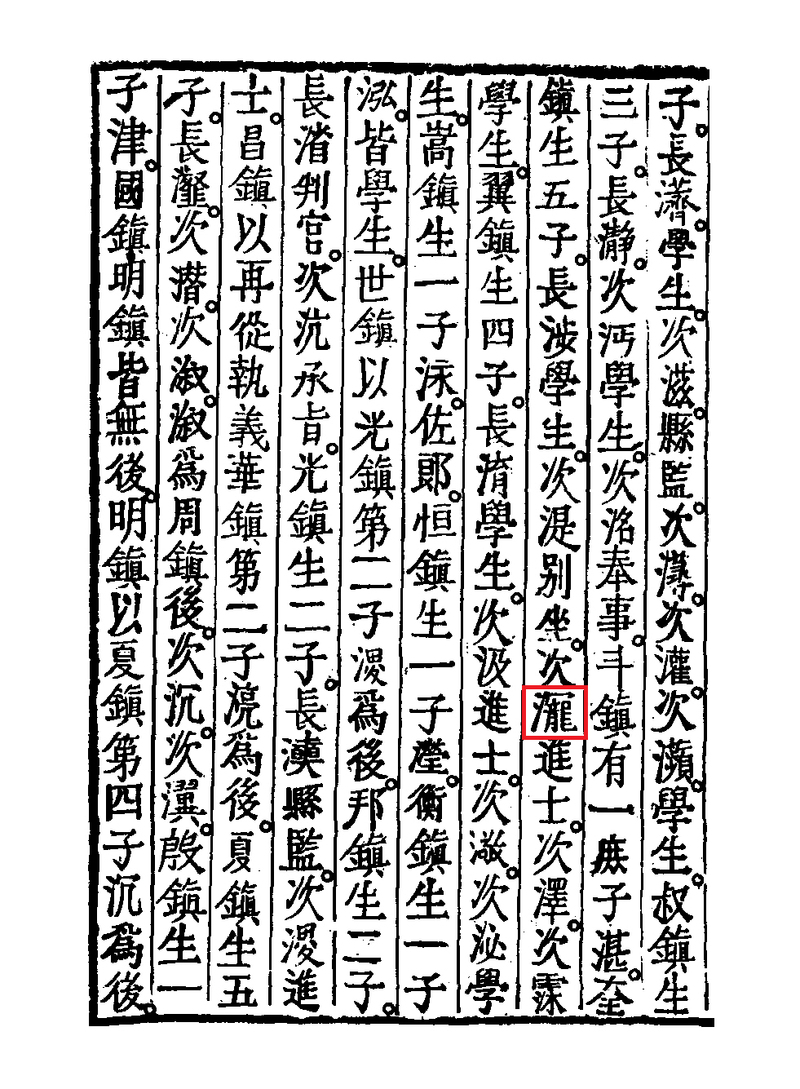 子長濟學生次滋縣監次潯次灌次瀕學生叔鎮生
三子長瀞次沔學生次洺奉事斗鎮有一庶子湛奎
鎮生五子長涉學生次湜別坐次瀧進士次澤次霂
學生翼鎮生四子長淯學生次汲進士次澂次泌學
生嵩鎮生一子泳佐郎恒鎮生一子瀅衡鎮生一子
泓皆學生世鎮以光鎮第二子渂為後邦鎮生二子
長渻判官次沆承旨光鎮生二子長濵縣監次渂進
士昌鎮以再從執義華鎮第二子滰為後夏鎮生五
子長灐次濳次淑淑為周鎮後次沉次瀷殷鎮生一
子津國鎮明鎮皆無後明鎮以夏鎮第四子沉為後